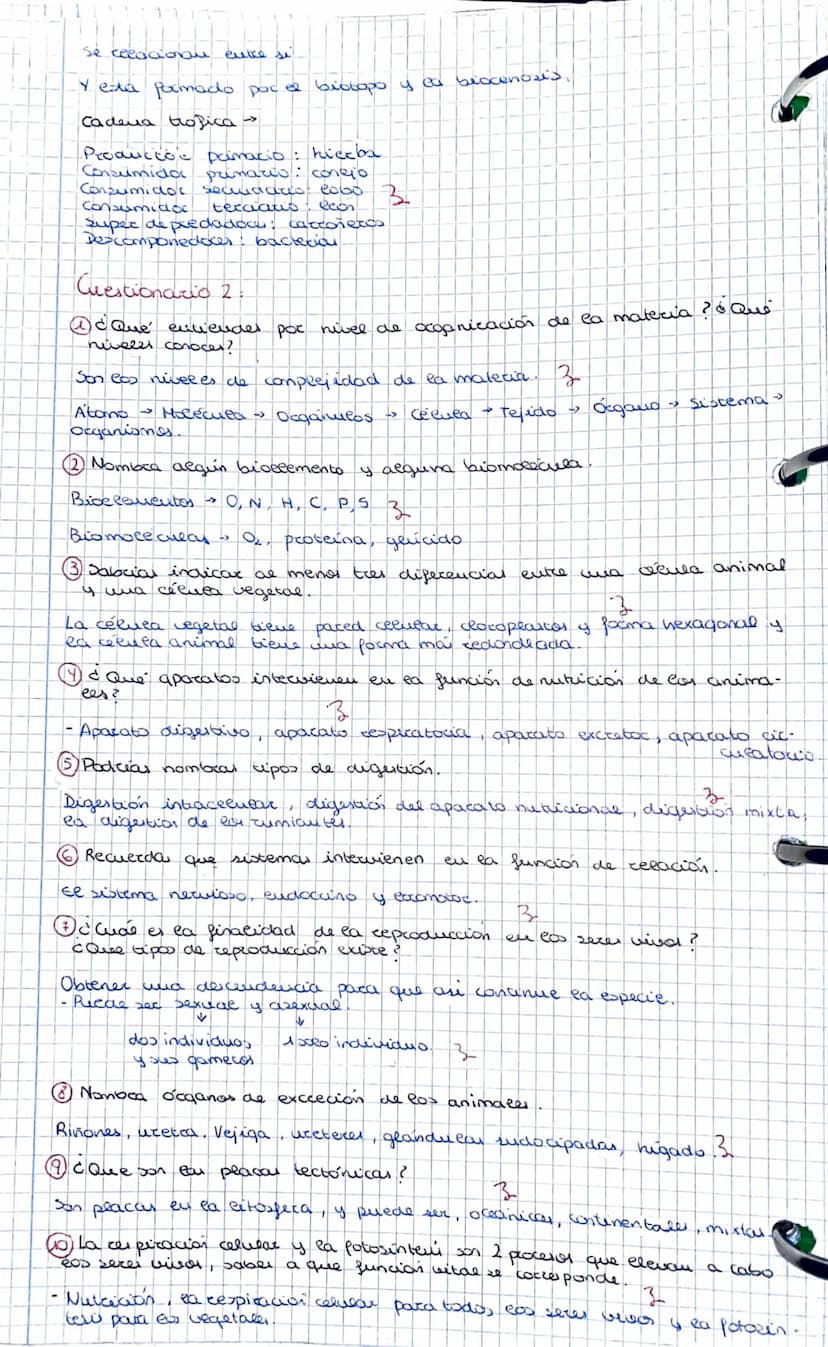 se relacionan entre sí
Y está formado por el biotopo y la biocenosis.
Cadena trófica →
Producción primario : hierba
Consumidor primario : conejo
Consumidor secundario : lobo
Consumidor terciario : león
Super depredador : carroñeros
Descomponedores : bacterias
Cuestionario 2 :
① ¿Qué entiendes por nivel de organización de la materia ? ¿Qué
niveles conoces?
Son los niveles de complejidad de la materia.
Átomo → Molécula → Orgánulos → Célula → Tejido → Órgano → Sistema →
Organismos.
② Nombra algún bioelemento y alguna biomolécula.
Bioelementos → O, N, H, C, P, S
Biomoléculas → O₂, proteína, glúcido
③ Sabrías indicar al menos tres diferencias entre una célula animal
y una célula vegetal.
La célula vegetal tiene pared celular, cloroplastos y forma hexagonal y
la célula animal tiene una forma más redondeada.
④ ¿Qué aparatos intervienen en la función de nutrición de los anima-
les?
- Aparato digestivo, aparato respiratoria, aparato excretor, aparato cir-
culatorio.
⑤ Podrías nombrar tipos de digestión.
Digestión intracelular, digestión del aparato nutricional, digestión mixta,
la digestión de los rumiantes.
⑥ Recuerda que sistemas intervienen en la función de relación.
el sistema nervioso, endocrino y locomotor.
⑦ ¿Cuál es la finalidad de la reproducción en los seres vivos ?
¿Que tipos de reproducción existe ?
Obtener una descendencia para que así continue la especie.
- Puede ser sexual y asexual.
dos individuos 1 solo individuo.
y sus gametos
⑧ Nombra órganos de excreción de los animales.
Riñones, uretra, Vejiga, uréteres, glándulas sudoripadas, hígado.
⑨ ¿Que son las placas tectónicas?
Son placas en la litosfera, y puede ser, oceánicas, continentales, mixtas.
⑩ La respiración celular y la fotosíntesis son 2 procesos que llevan a cabo
los seres vivos, sabes a que función vital se corresponde.
- Nutrición, la respiración celular para todos los seres vivos y la fotosín-
tesis para los vegetales.